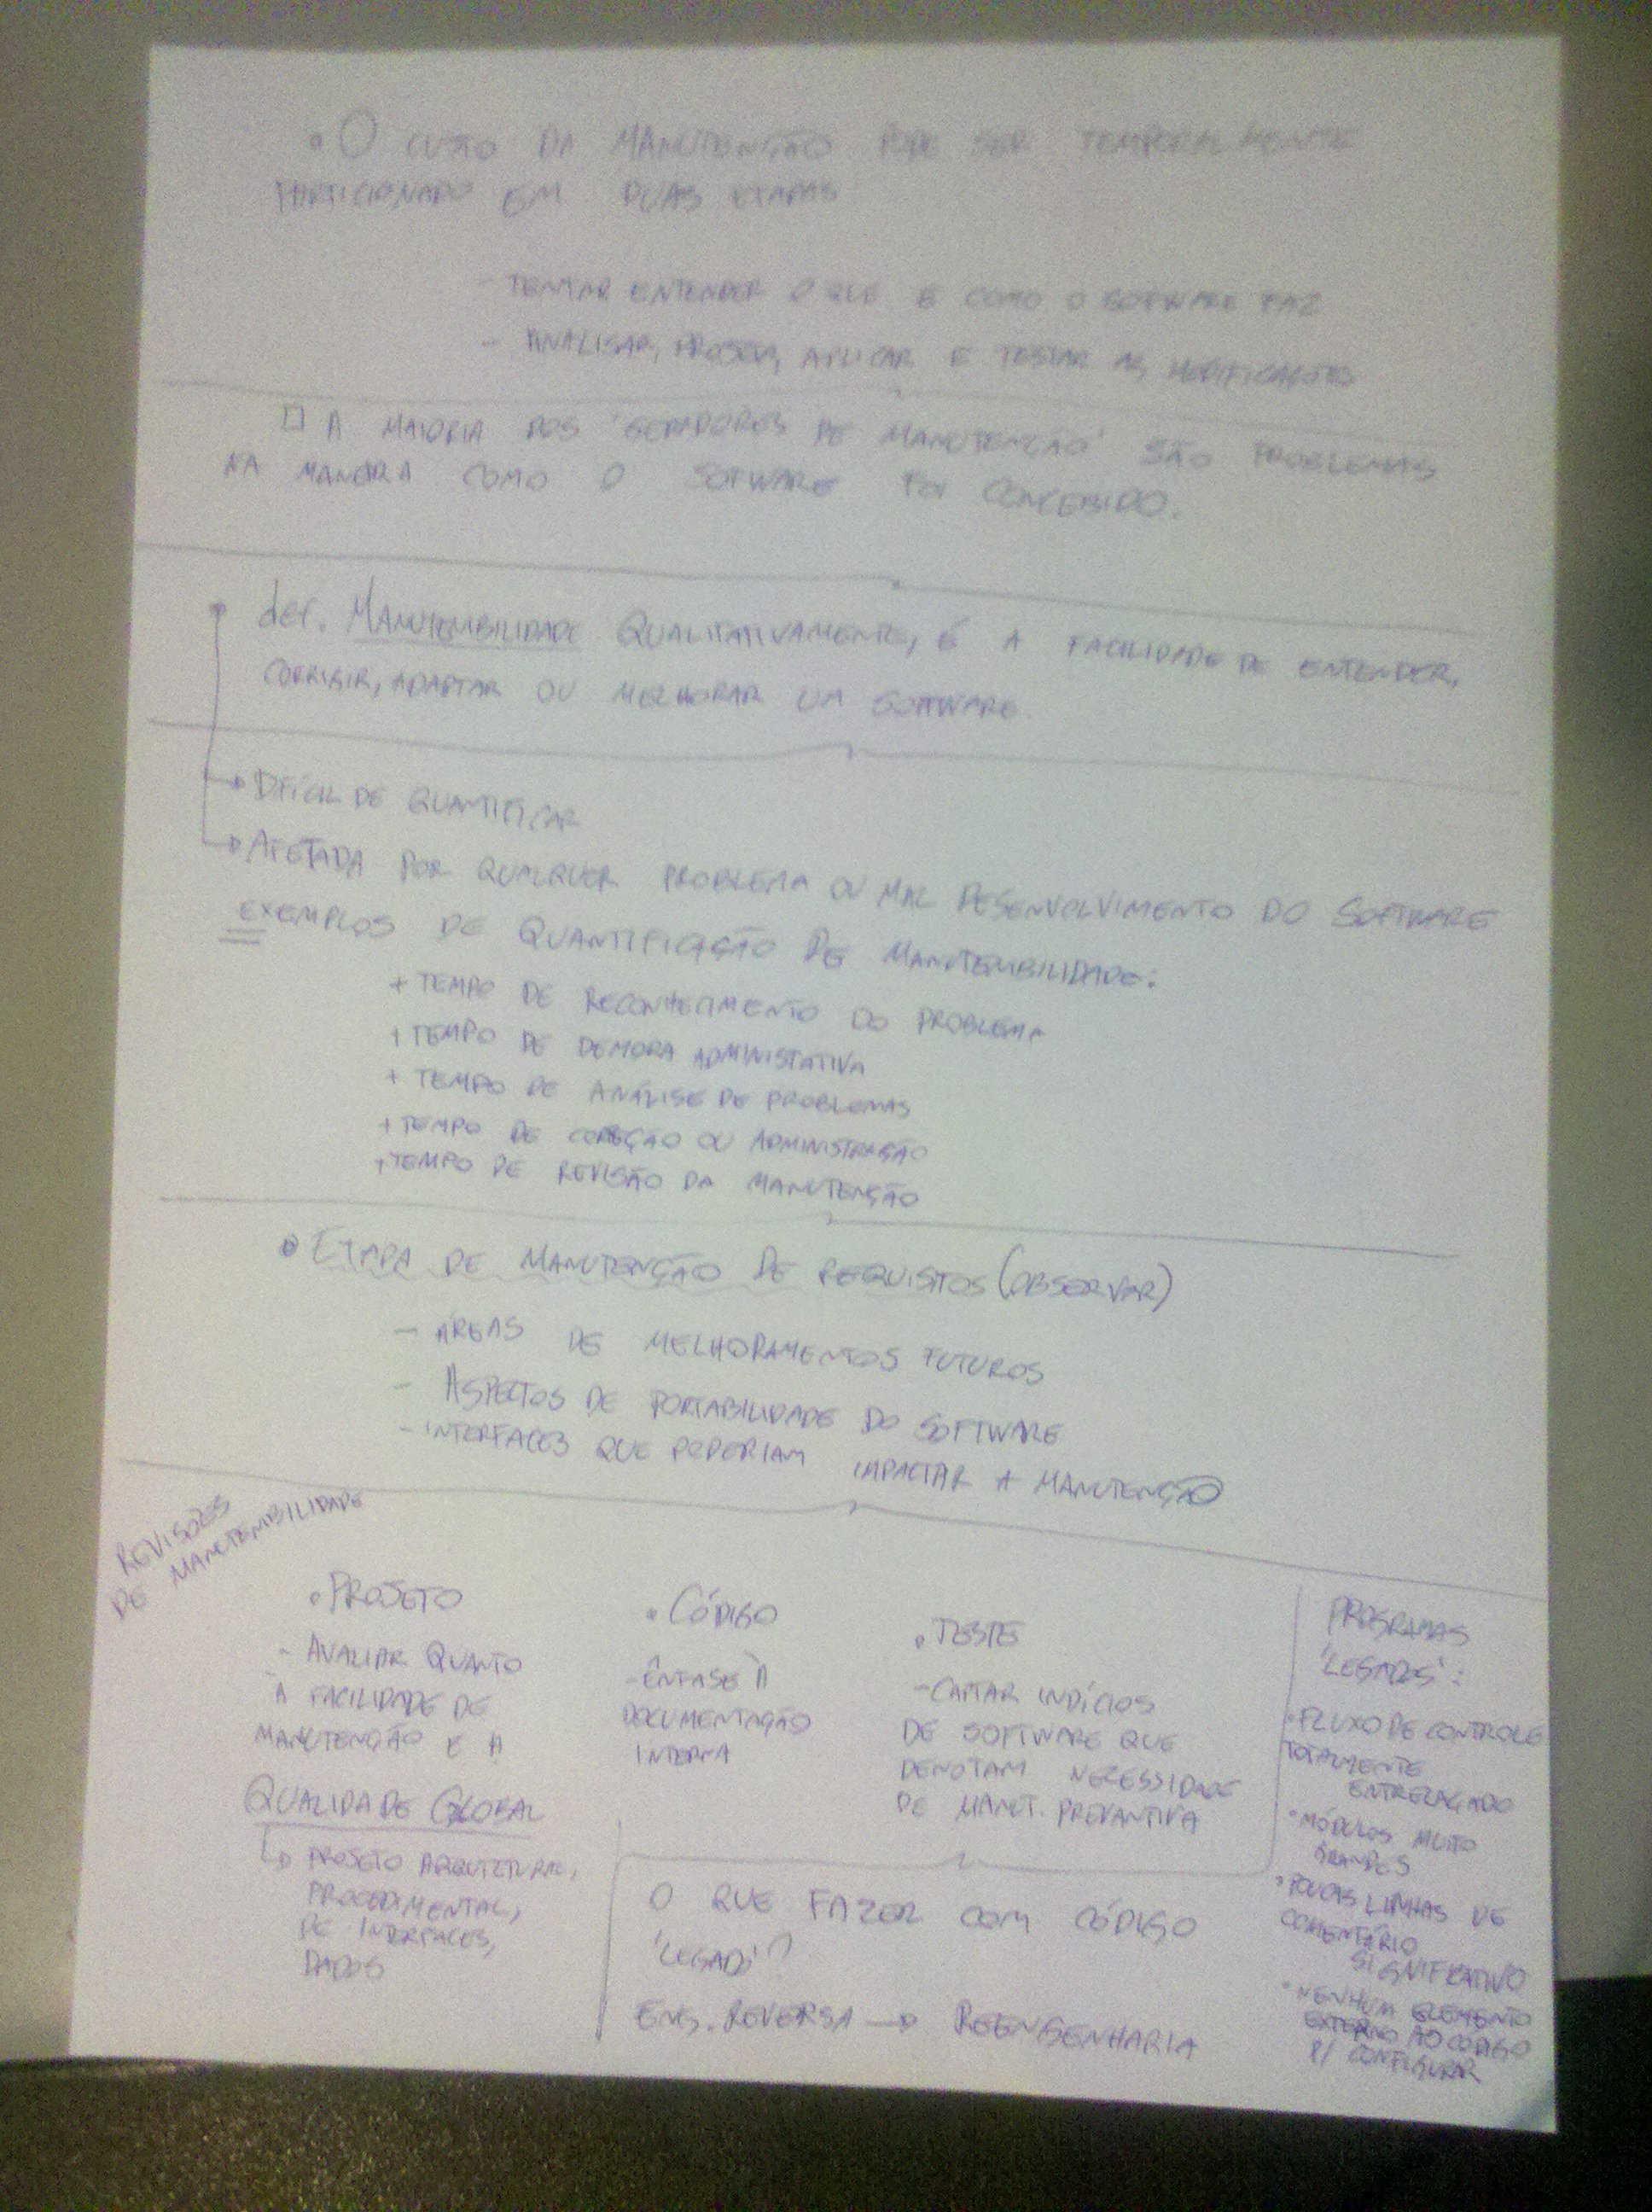 • O CUSTO DA MANUTENÇÃO PODE SER TEMPORALMENTE
PARTICIONADO EM DUAS ETAPAS
- TENTAR ENTENDER O QUE E COMO O SOFTWARE FAZ
- ANALISAR, PROJETAR, APLICAR E TESTAR AS MODIFICAÇÕES
□ A MAIORIA DOS 'GERADORES DE MANUTENÇÃO' SÃO PROBLEMAS
NA MANEIRA COMO O SOFTWARE FOI CONCEBIDO.
• def. MANUTEMBILIDADE QUALITATIVAMENTE, É A FACILIDADE DE ENTENDER,
CORRIGIR, ADAPTAR OU MELHORAR UM SOFTWARE.
→ DIFÍCIL DE QUANTIFICAR
→ AFETADA POR QUALQUER PROBLEMA OU MAL DESENVOLVIMENTO DO SOFTWARE
EXEMPLOS DE QUANTIFICAÇÃO DE MANUTEMBILIDADE:
+ TEMPO DE RECONHECIMENTO DO PROBLEMA
+ TEMPO DE DEMORA ADMINISTATIVA
+ TEMPO DE ANÁLISE DE PROBLEMAS
+ TEMPO DE CORREÇÃO OU ADMINISTRAÇÃO
+ TEMPO DE REVISÃO DA MANUTENÇÃO
• ETAPA DE MANUTENÇÃO DE REQUISITOS (OBSERVAR)
- ÁREAS DE MELHORAMENTOS FUTUROS
- ASPECTOS DE PORTABILIDADE DO SOFTWARE
- INTERFACES QUE PODERIAM IMPACTAR A MANUTENÇÃO
REVISÕES
DE MANUTEMBILIDADE
• PROJETO
- AVALIAR QUANTO
A FACILIDADE DE
MANUTENÇÃO E A
QUALIDADE GLOBAL
→ PROJETO ARQUITETURAL,
PROCEDIMENTAL,
DE INTERFACES,
DADOS
• CÓDIGO
- ÊNFASE À
DOCUMENTAÇÃO
INTERNA
• TESTE
- CAPTAR INDÍCIOS
DE SOFTWARE QUE
DENOTAM NECESSIDADE
DE MANUT. PREVANTIVA
O QUE FAZER COM CÓDIGO
'LEGADO'?
ENG. REVERSA → REENGENHARIA
PROGRAMAS
'LEGADOS':
• FLUXO DE CONTROLE
TOTALMENTE
ENTRELAÇADO
• MÓDULOS MUITO
GRANDES
• POUCAS LINHAS DE
COMENTÁRIO
SIGNIFICATIVO
• NENHUM ELEMENTO
EXTERNO AO CÓDIGO
P/ CONFIGURAR